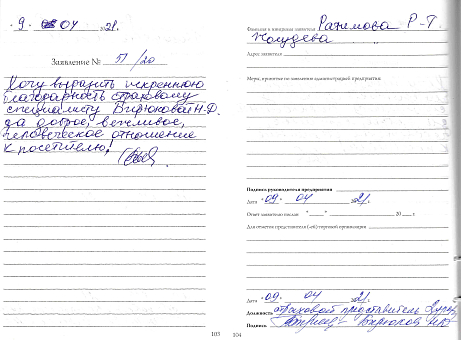 "9" 04 21.
Заявление № 51/20
Хочу выразить искреннюю
благодарность страховому
специалисту Бирюковой Н.Д.
за доброе, вежливое,
человеческое отношение
к посетителю!
103
Фамилия и инициалы заявителя Рагимова Р-Т
Адрес заявителя
Меры, принятые по заявлению администрацией предприятия:
Подпись руководителя предприятия
Дата "09" 04 2021.
Ответ заявителю послан "____" 20 г.
Для отметки представителя (-ей) торговой организации
Дата "09" 04 2021.
Должность страховой представитель
Подпись Бирюкова
104